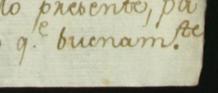 lo presente, pa
q.e buenam.te